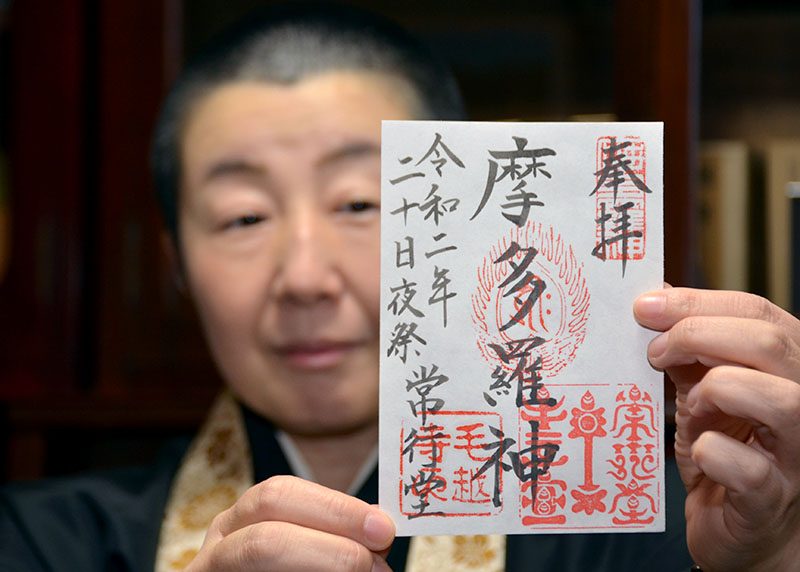 奉拝
摩多羅神
令和二年
二十日夜祭
常行堂
毛越